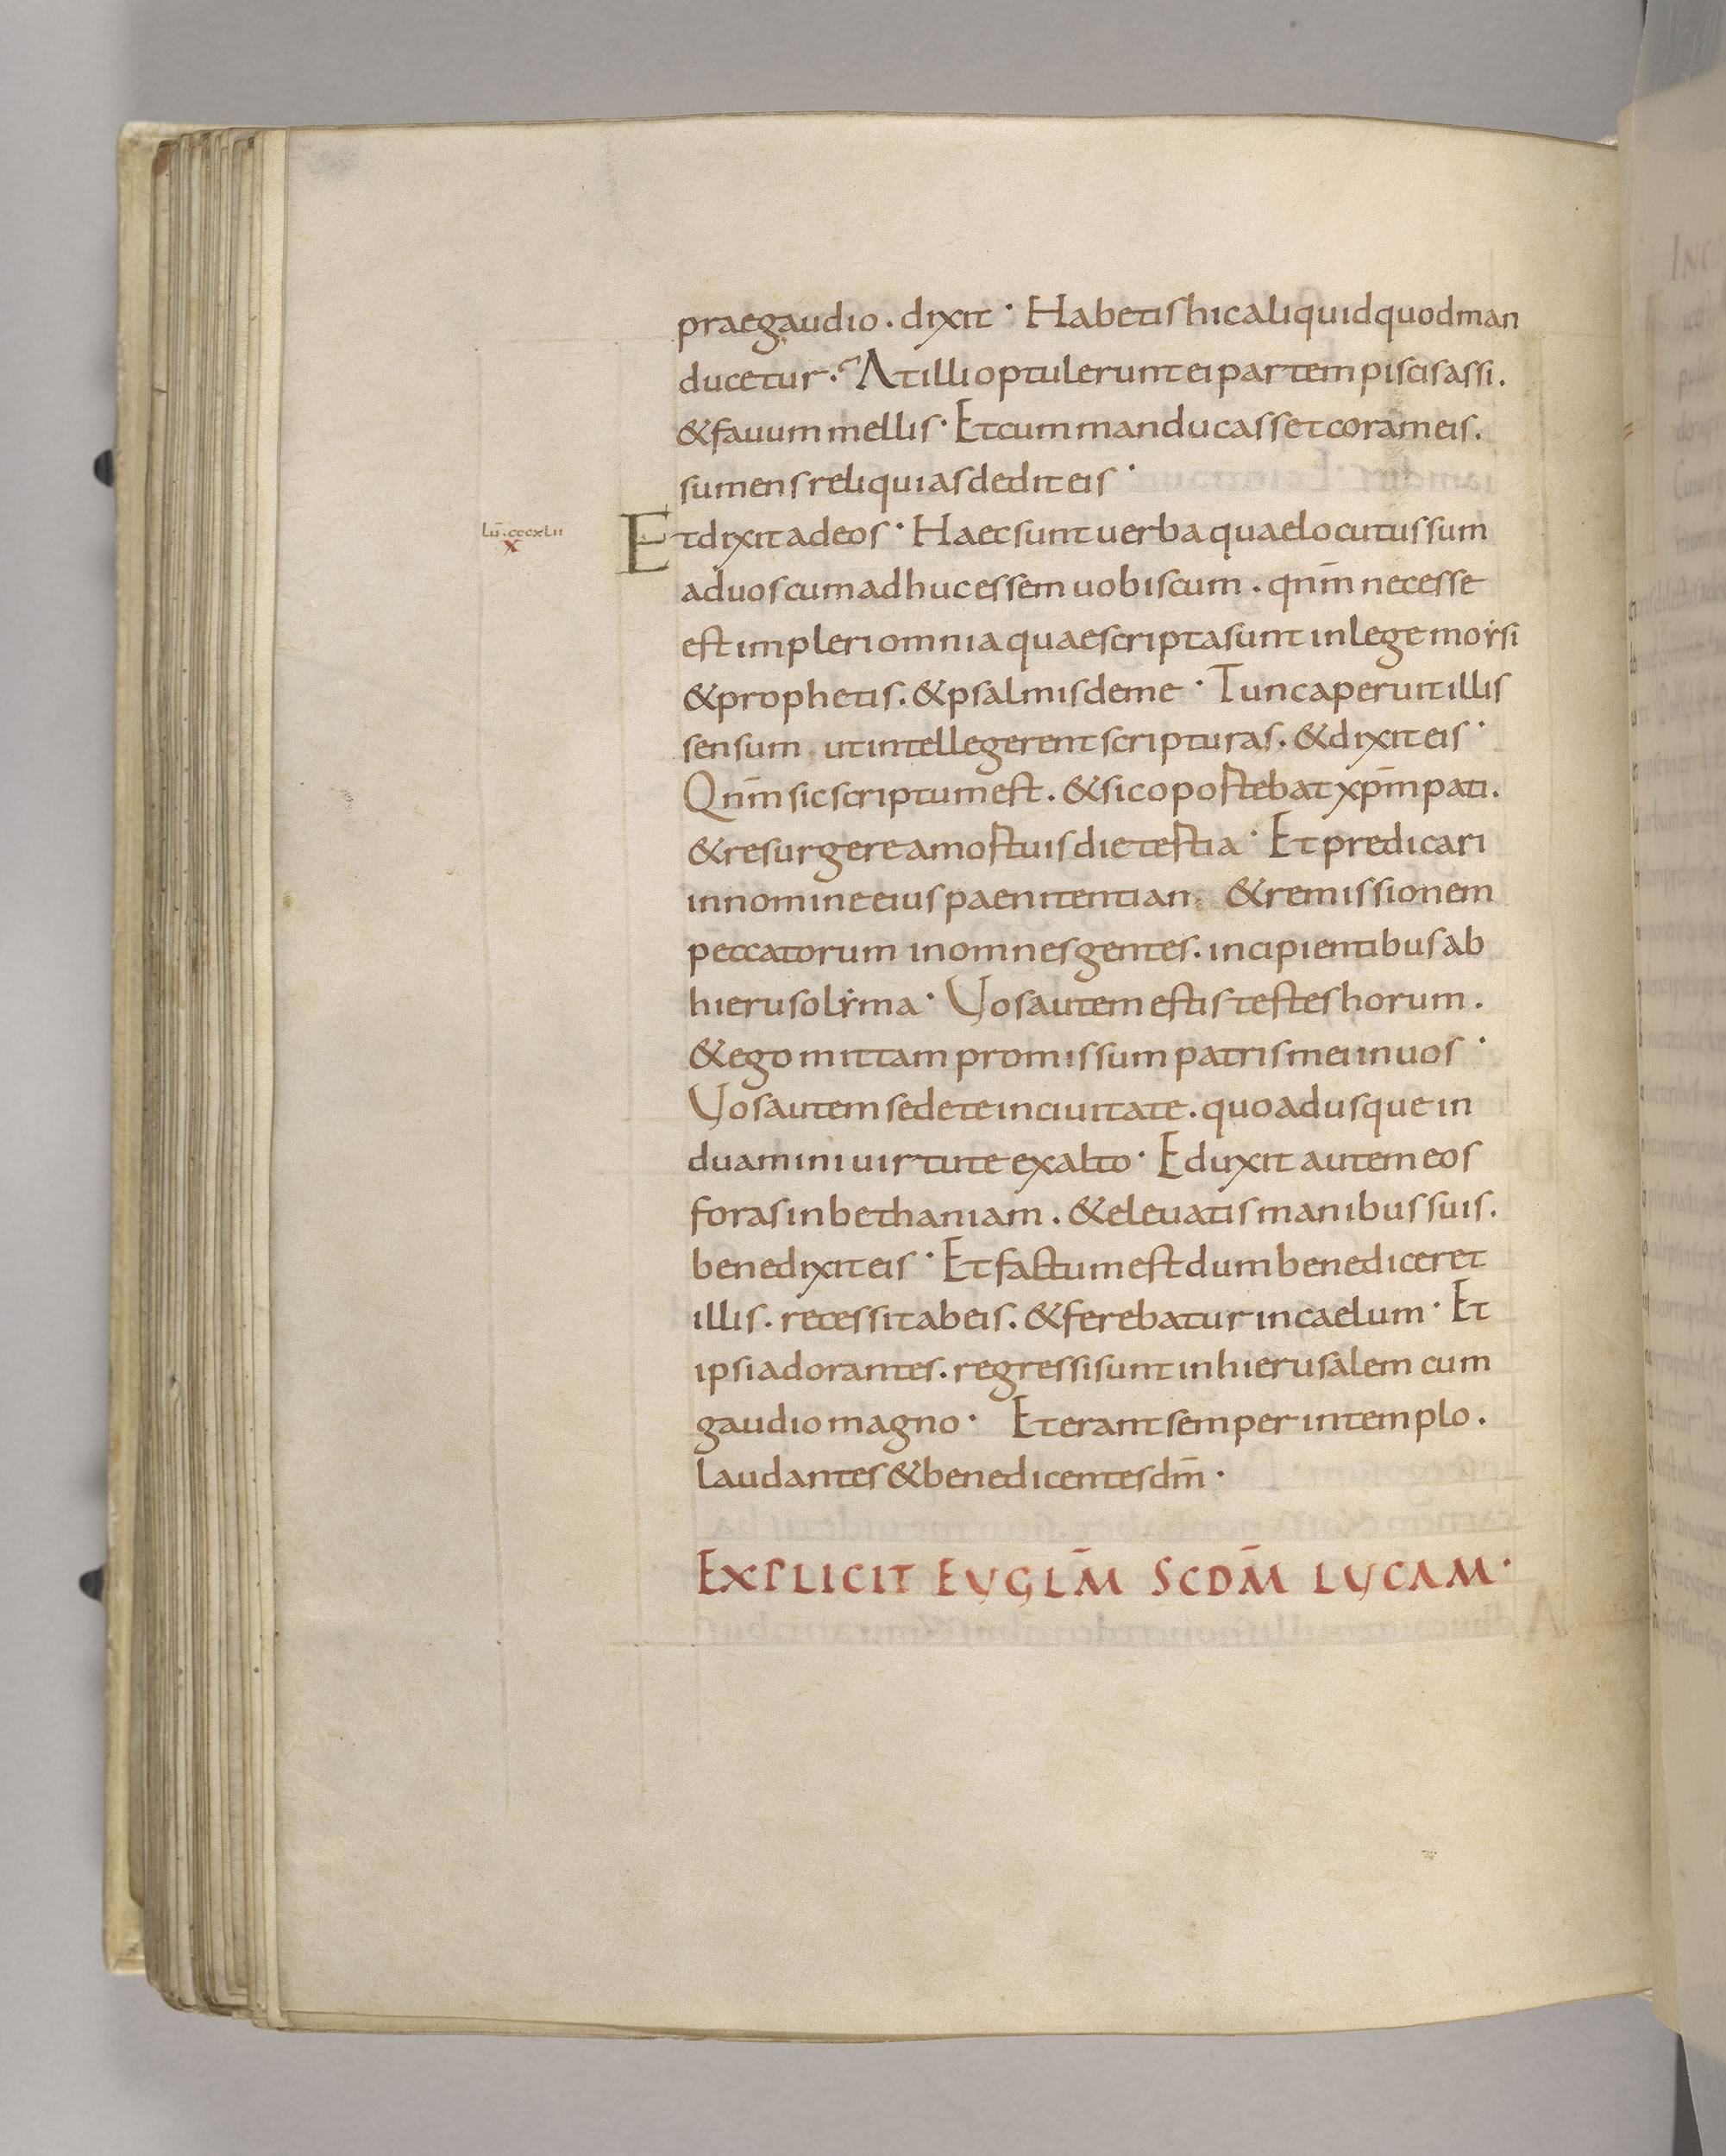 prae gaudio . dixit · Habetis hic aliquid quod man
ducetur · At illi optulerunt ei partem piscis assi .
& fauum mellis · Et cum manducasset coram eis .
sumens reliquias dedit eis ·
Lū . cccxLii
x
Et dixit ad eos · Haec sunt uerba quae locutus sum
ad uos cum adhuc essem uobiscum . qnm̄ necesse
est impleri omnia quae scripta sunt in lege moẏsi
& prophetis . & psalmis de me · Tunc aperuit illis
sensum ut intellegerent scripturas . & dixit eis ·
Qnm̄ sic scriptum est . & sic oportebat xpm̄ pati .
& resurgere a mortuis die tertia · Et predicari
in nomine eius paenitentiam & remissionem
peccatorum in omnes gentes . incipientibus ab
hierusolẏma · Vos autem estis testes horum .
& ego mittam promissum patris mei in uos ·
Vos autem sedete in ciuitate . quoadusque in
duamini uirtute ex alto · Eduxit autem eos
foras in bethaniam . & eleuatis manibus suis .
benedixit eis · Et factum est dum benediceret
illis . recessit ab eis . & ferebatur in caelum · Et
ipsi adorantes . regressi sunt in hierusalem cum
gaudio magno · Et erant semper in templo .
Laudantes & benedicentes dm̄ ·
EXPLICIT EVGLM̄ SCDM̄ LVCAM ·